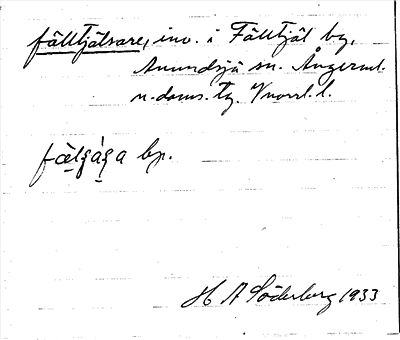 fälltjälsare, inv. i Fälltjäl by,
Anundsjö sn. Ångermanl.
n. doms. tg. Vnorrl. l.
fælgága bp.
H A Söderberg 1933